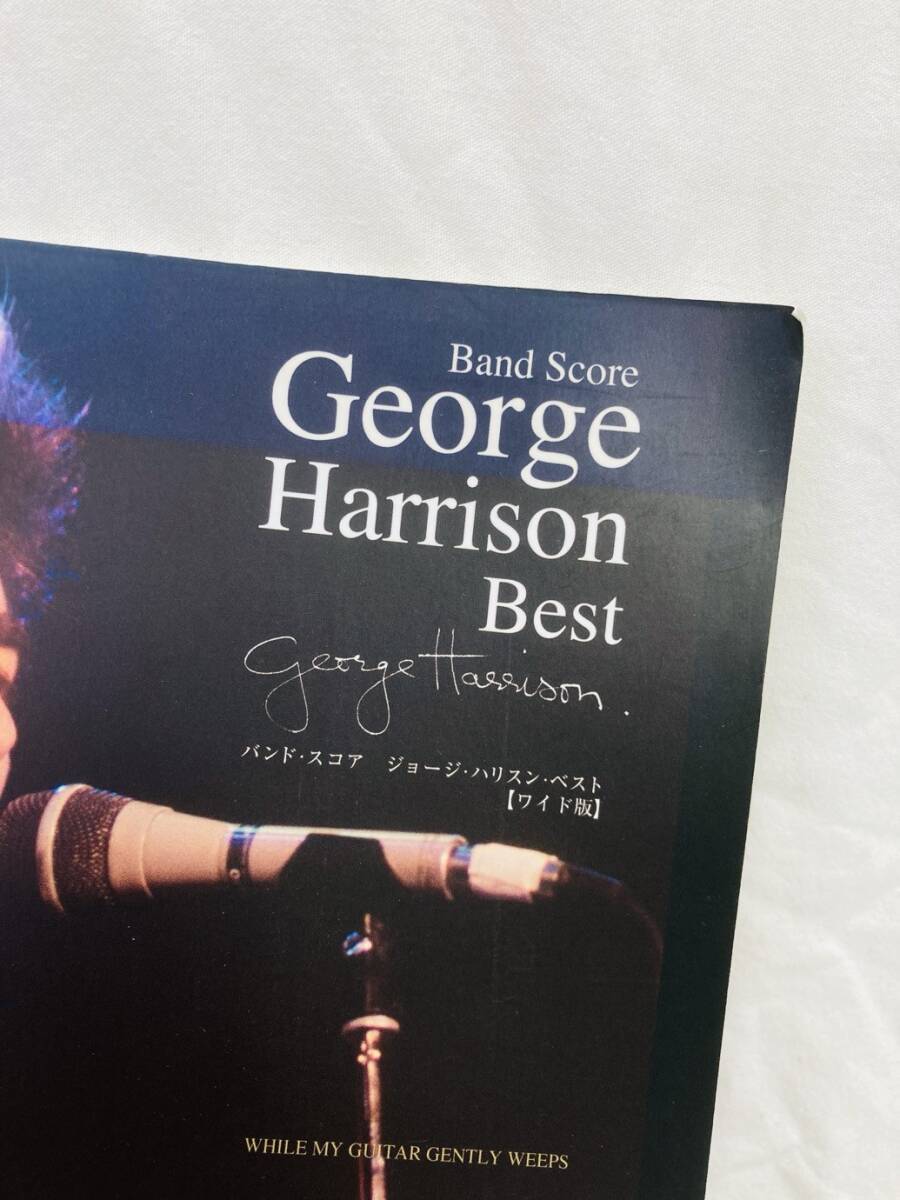 Band Score
George
Harrison
Best
George Harrison.
バンド・スコア ジョージ・ハリスン・ベスト
【ワイド版】
WHILE MY GUITAR GENTLY WEEPS